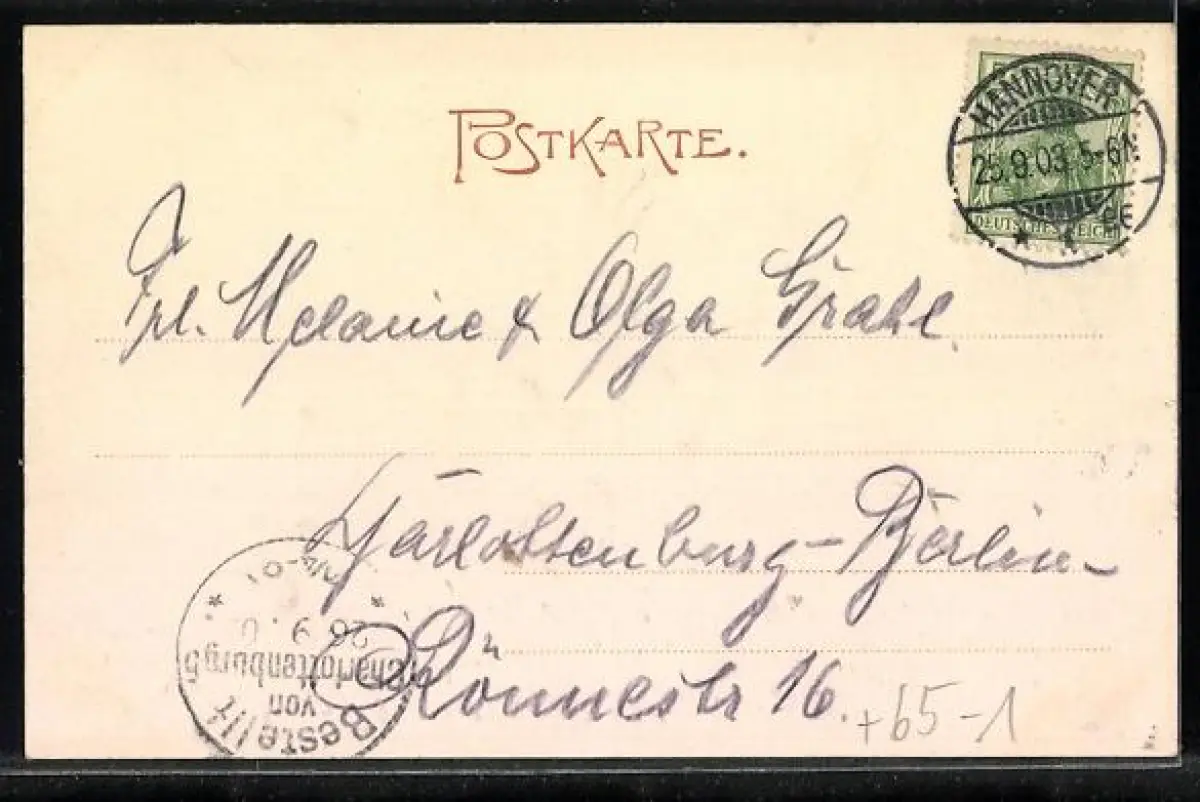 POSTKARTE.
HANNOVER
25.9.03 5-6N
* 1 *
DEUTSCHES REICH
Frl. Melanie & Olga
Charlottenburg-Berlin-
Rönnestr 16.
+65-1
Bestellt
von
Charlottenburg 5
26 9.0